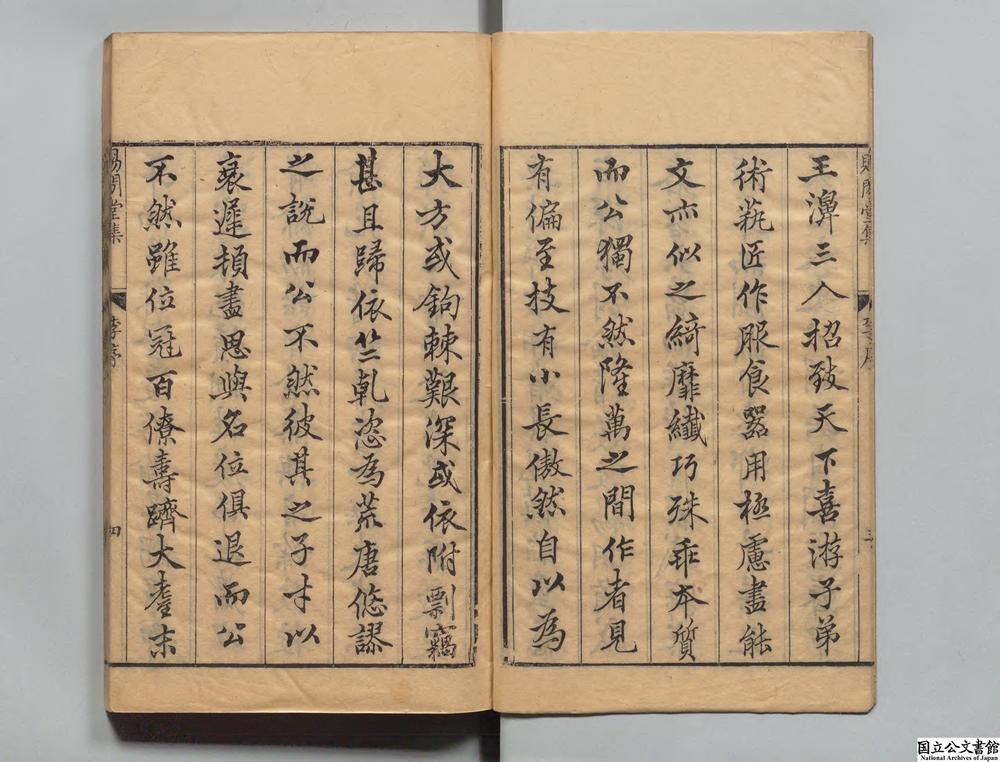 王濞三入招致天下喜游子弟
術蓺匠作服食器用極慮盡能
文亦似之綺靡纖巧殊乖本質
而公獨不然隆萬之間作者見
有偏至技有小長傲然自以為
大方或鉤棘艱深或依附剽竊
甚且歸依竺乾恣為荒唐悠謬
之說而公不然彼其之子才以
衰遲損盡思與名位俱退而公
不然雖位冠百僚壽躋大耋末
賜閒堂集
李序
四
国立公文書館
National Archives of Japan